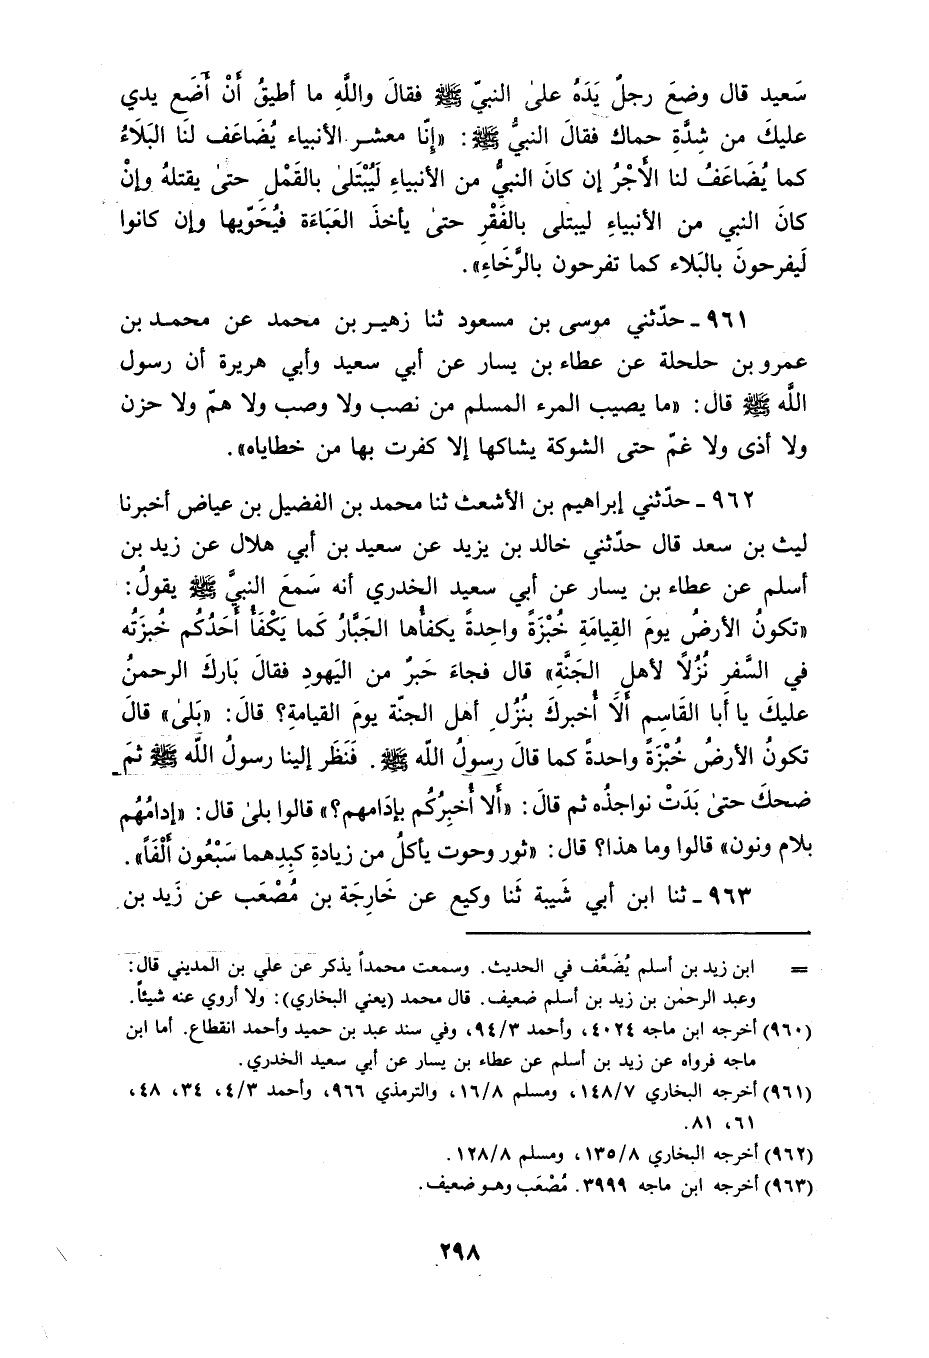 سَعيد قال وضعَ رجلٌ يَدَهُ علىٰ النبيّ ﷺ فقالَ واللَّهِ ما أطيقُ أَنْ أَضَع يدي
عليكَ من شِدَّةِ حماك فقالَ النبيُّ ﷺ: «إِنّا معشر الأنبياء يُضَاعَف لنَا البَلَاءُ
كما يُضَاعَفُ لنا الأَجْرُ إن كانَ النبيُّ من الأنبياءِ لَيُبْتَلىٰ بالقَمْلِ حتىٰ يقتلهُ وإنْ
كانَ النبي من الأنبياءِ ليبتلى بالفَقْرِ حتىٰ يأخذَ العَبَاءَة فيُخَوّيها وإن كانوا
لَيفرحونَ بالبَلاء كما تفرحون بالرَّخَاءِ».
٩٦١ - حدّثني موسى بن مسعود ثنا زهير بن محمد عن محمد بن
عمرو بن حلحلة عن عطاء بن يسار عن أبي سعيد وأبي هريرة أن رسول
اللَّه ﷺ قال: «ما يصيب المرء المسلم من نصب ولا وصب ولا همّ ولا حزن
ولا أذى ولا غمّ حتى الشوكة يشاكها إلا كفرت بها من خطاياه».
٩٦٢ - حدّثني إبراهيم بن الأشعث ثنا محمد بن الفضيل بن عياض أخبرنا
ليث بن سعد قال حدّثني خالد بن يزيد عن سعيد بن أبي هلال عن زيد بن
أسلم عن عطاء بن يسار عن أبي سعيد الخدري أنه سَمعَ النبيَّ ﷺ يقولُ:
«تكونُ الأرضُ يومَ القِيامَةِ خُبْزَةً واحِدةً يكفأها الجَبَّارُ كَما يَكْفَأُ أَحَدُكُم خُبزَتُه
في السَّفرِ نُزُلًا لأهلِ الجَنَّةِ» قال فجاءَ حَبرٌ من اليَهودِ فقالَ بَاركَ الرحمنُ
عليكَ يا أبا القَاسِمِ أَلَا أُخبركَ بنُزُلِ أهل الجنّة يومَ القيامةِ؟ قالَ: «بَلىٰ» قالَ
تكونُ الأرضُ خُبْزَةً واحدةً كما قالَ رسولُ اللّه ﷺ. فَنَظَر إلينا رسولُ اللّه ﷺ ثمَ
ضحكَ حتىٰ بَدَتْ نواجذُه ثم قالَ: «أَلا أُخبِرُكُم بإدَامهم؟» قالوا بلىٰ قال: «إدامُهُم
بلام ونون» قالوا وما هذا؟ قال: «ثور وحوت يأكلُ من زيادةِ كبِدِهما سَبْعُون أَلْفَاً».
٩٦٣ - ثنا ابن أبي شَيبة ثَنا وكيع عن خَارِجَة بن مُصْعَب عن زَيد بن
= ابن زيد بن أسلم يُضَعَّف في الحديث. وسمعت محمداً يذكر عن علي بن المديني قال:
وعبد الرحمٰن بن زيد بن أسلم ضعيف. قال محمد (يعني البخاري): ولا أروي عنه شيئاً.
(٩٦٠) أخرجه ابن ماجه ٤٠٢٤، وأحمد ٩٤/٣، وفي سند عبد بن حميد وأحمد انقطاع. أما ابن
ماجه فرواه عن زيد بن أسلم عن عطاء بن يسار عن أبي سعيد الخدري.
(٩٦١) أخرجه البخاري ١٤٨/٧، ومسلم ١٦/٨، والترمذي ٩٦٦، وأحمد ٤/٣، ٣٤، ٤٨،
٦١، ٨١.
(٩٦٢) أخرجه البخاري ١٣٥/٨، ومسلم ١٢٨/٨.
(٩٦٣) أخرجه ابن ماجه ٣٩٩٩. مُصْعَب وهو ضعيف.
٢٩٨